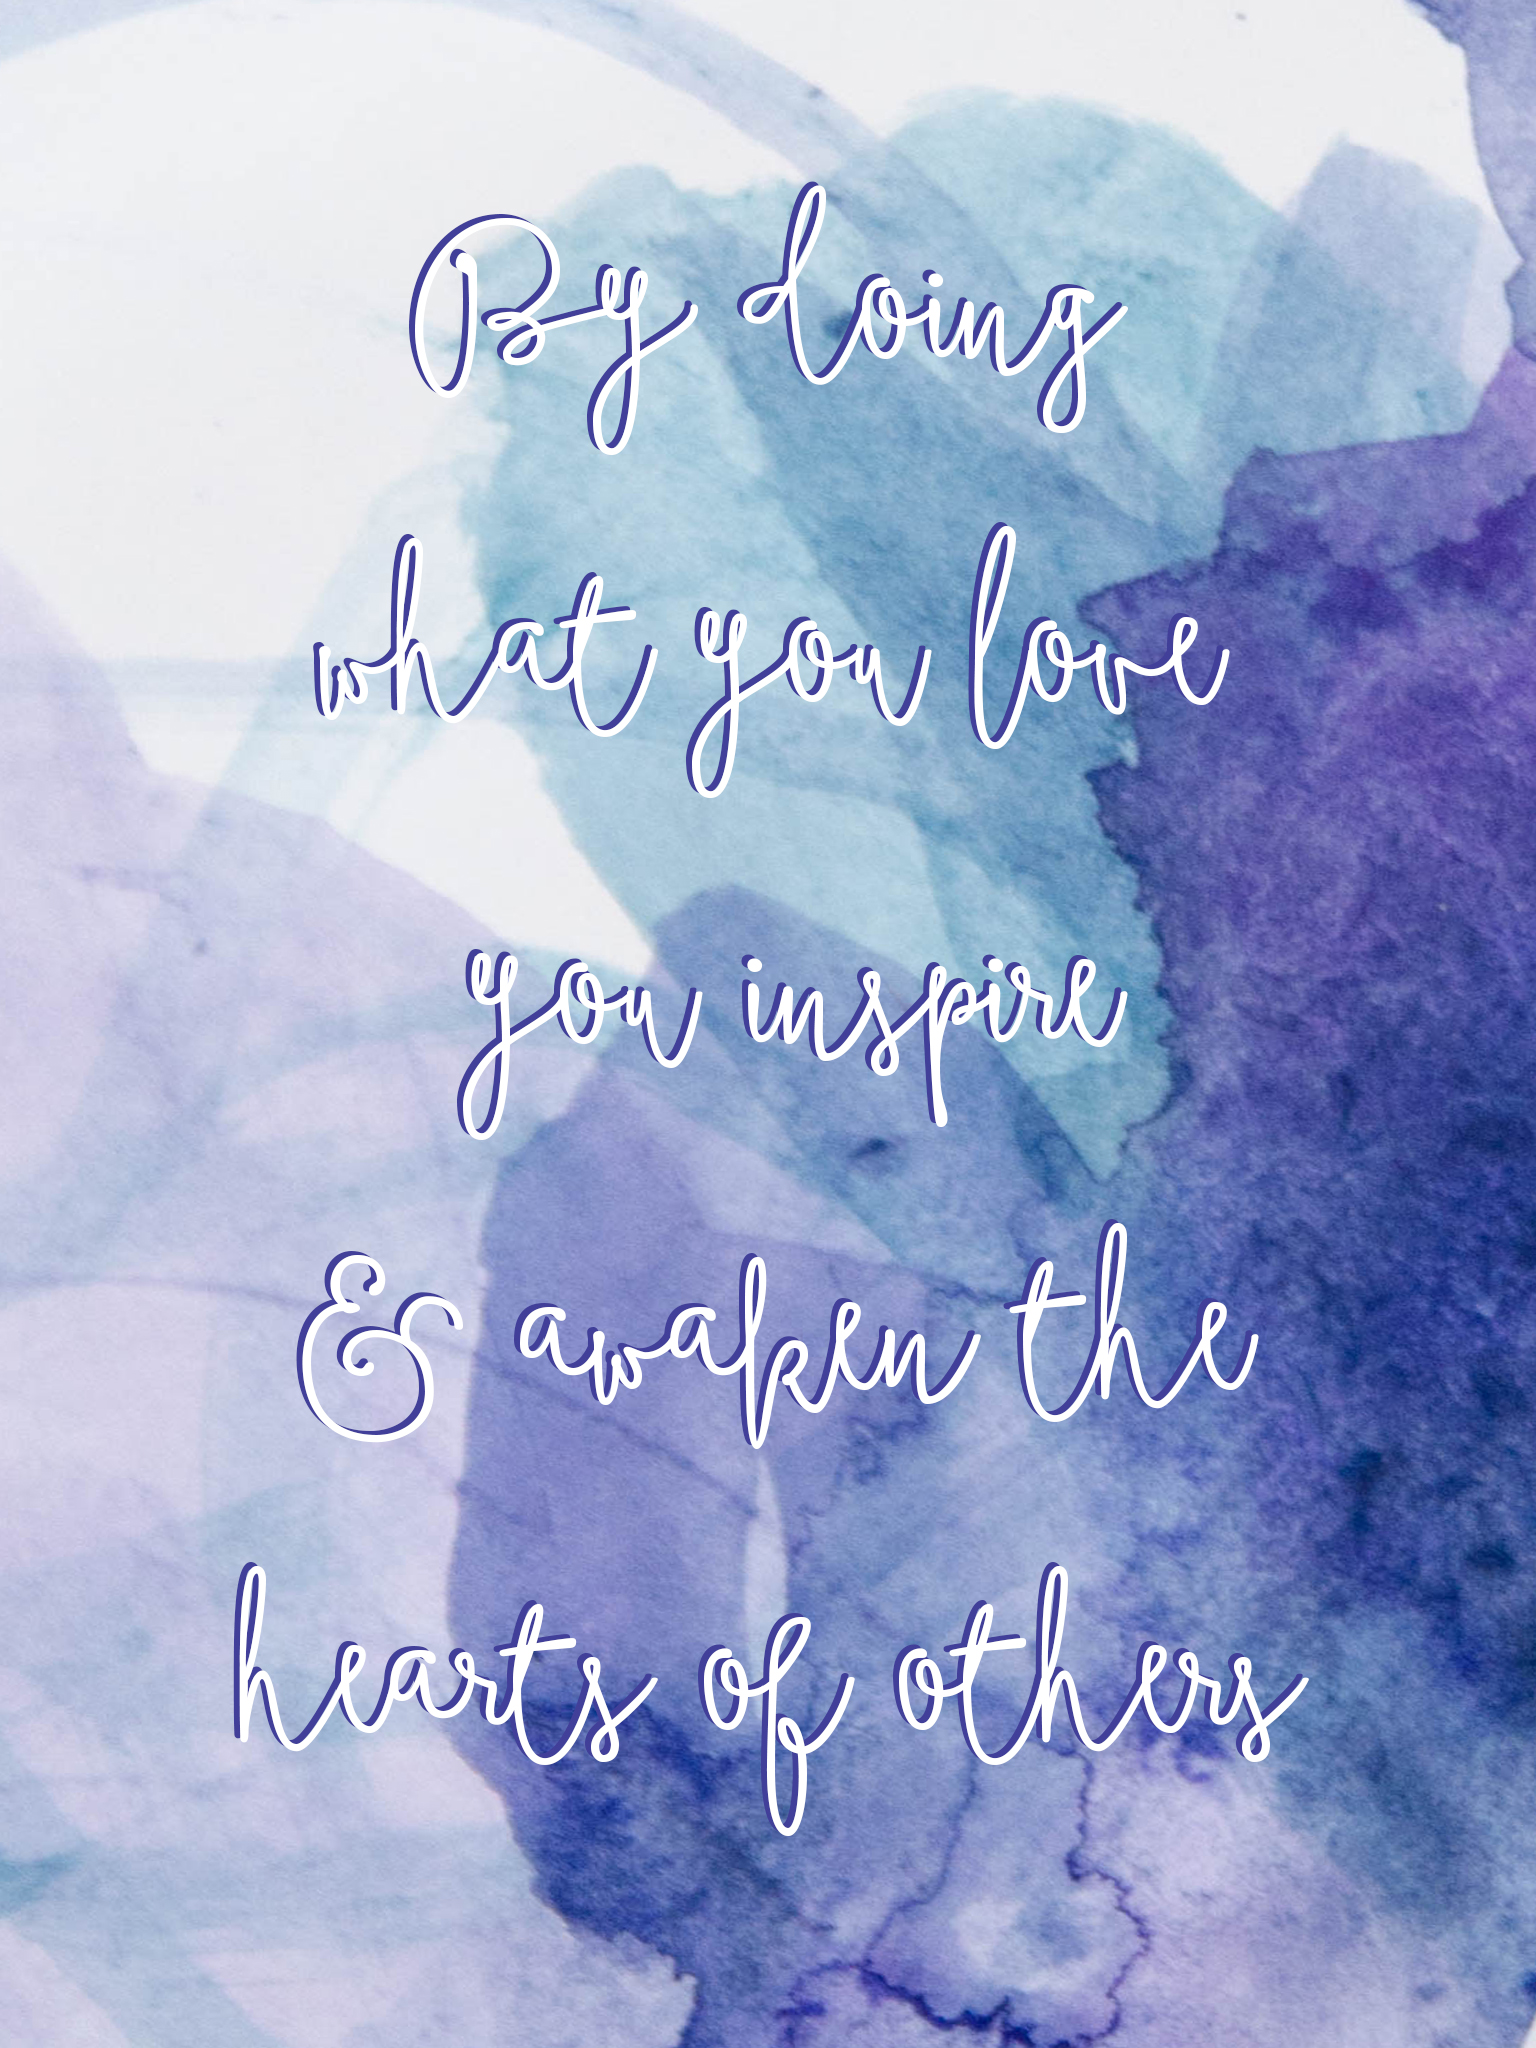 By doing
what you love
you inspire
& awaken the
hearts of others